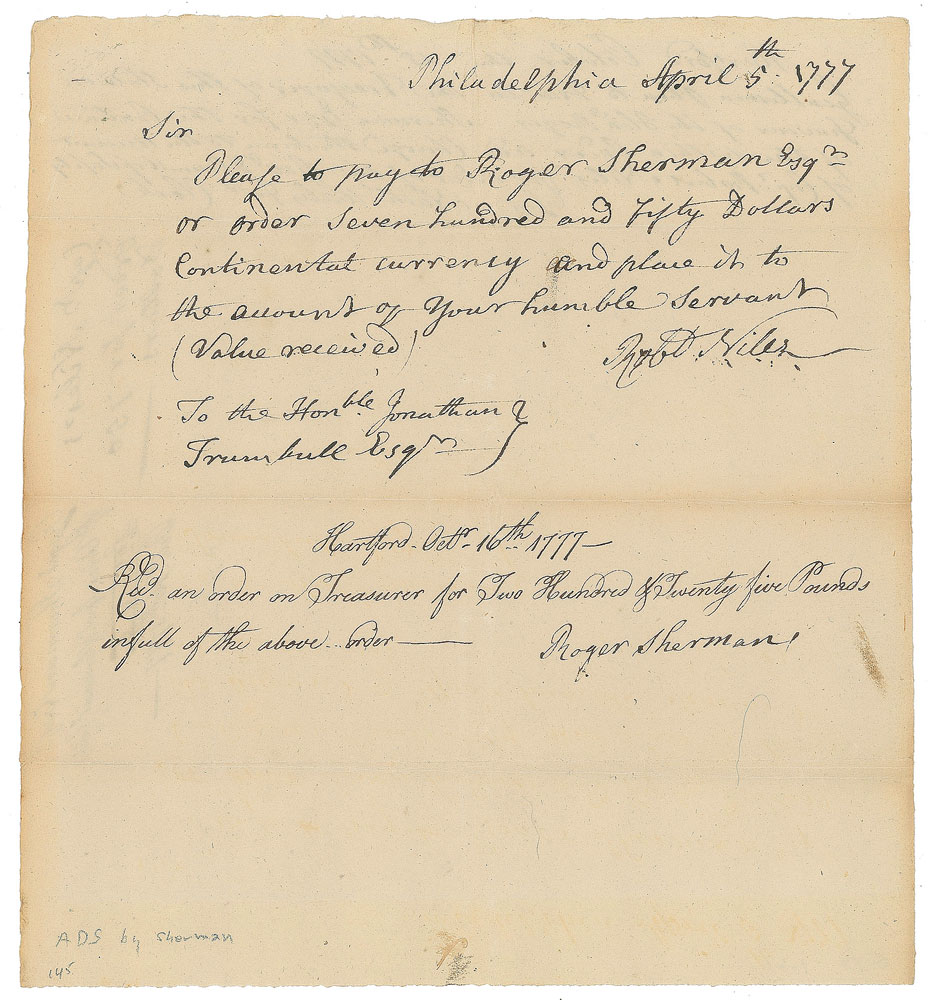 Philadelphia April 5th 1777
Sir
Please to pay to Roger Sherman Esqr
or order Seven hundred and fifty Dollars
Continental currency and place it to
the account of Your humble Servant
(Value received) Robt Niles
To the Honble Jonathan }
Trumbull Esqr
Hartford Octr 16th 1777
Recd. an order on Treasurer for Two Hundred & Twenty five Pounds
infull of the above order Roger Sherman
ADS by Sherman
145